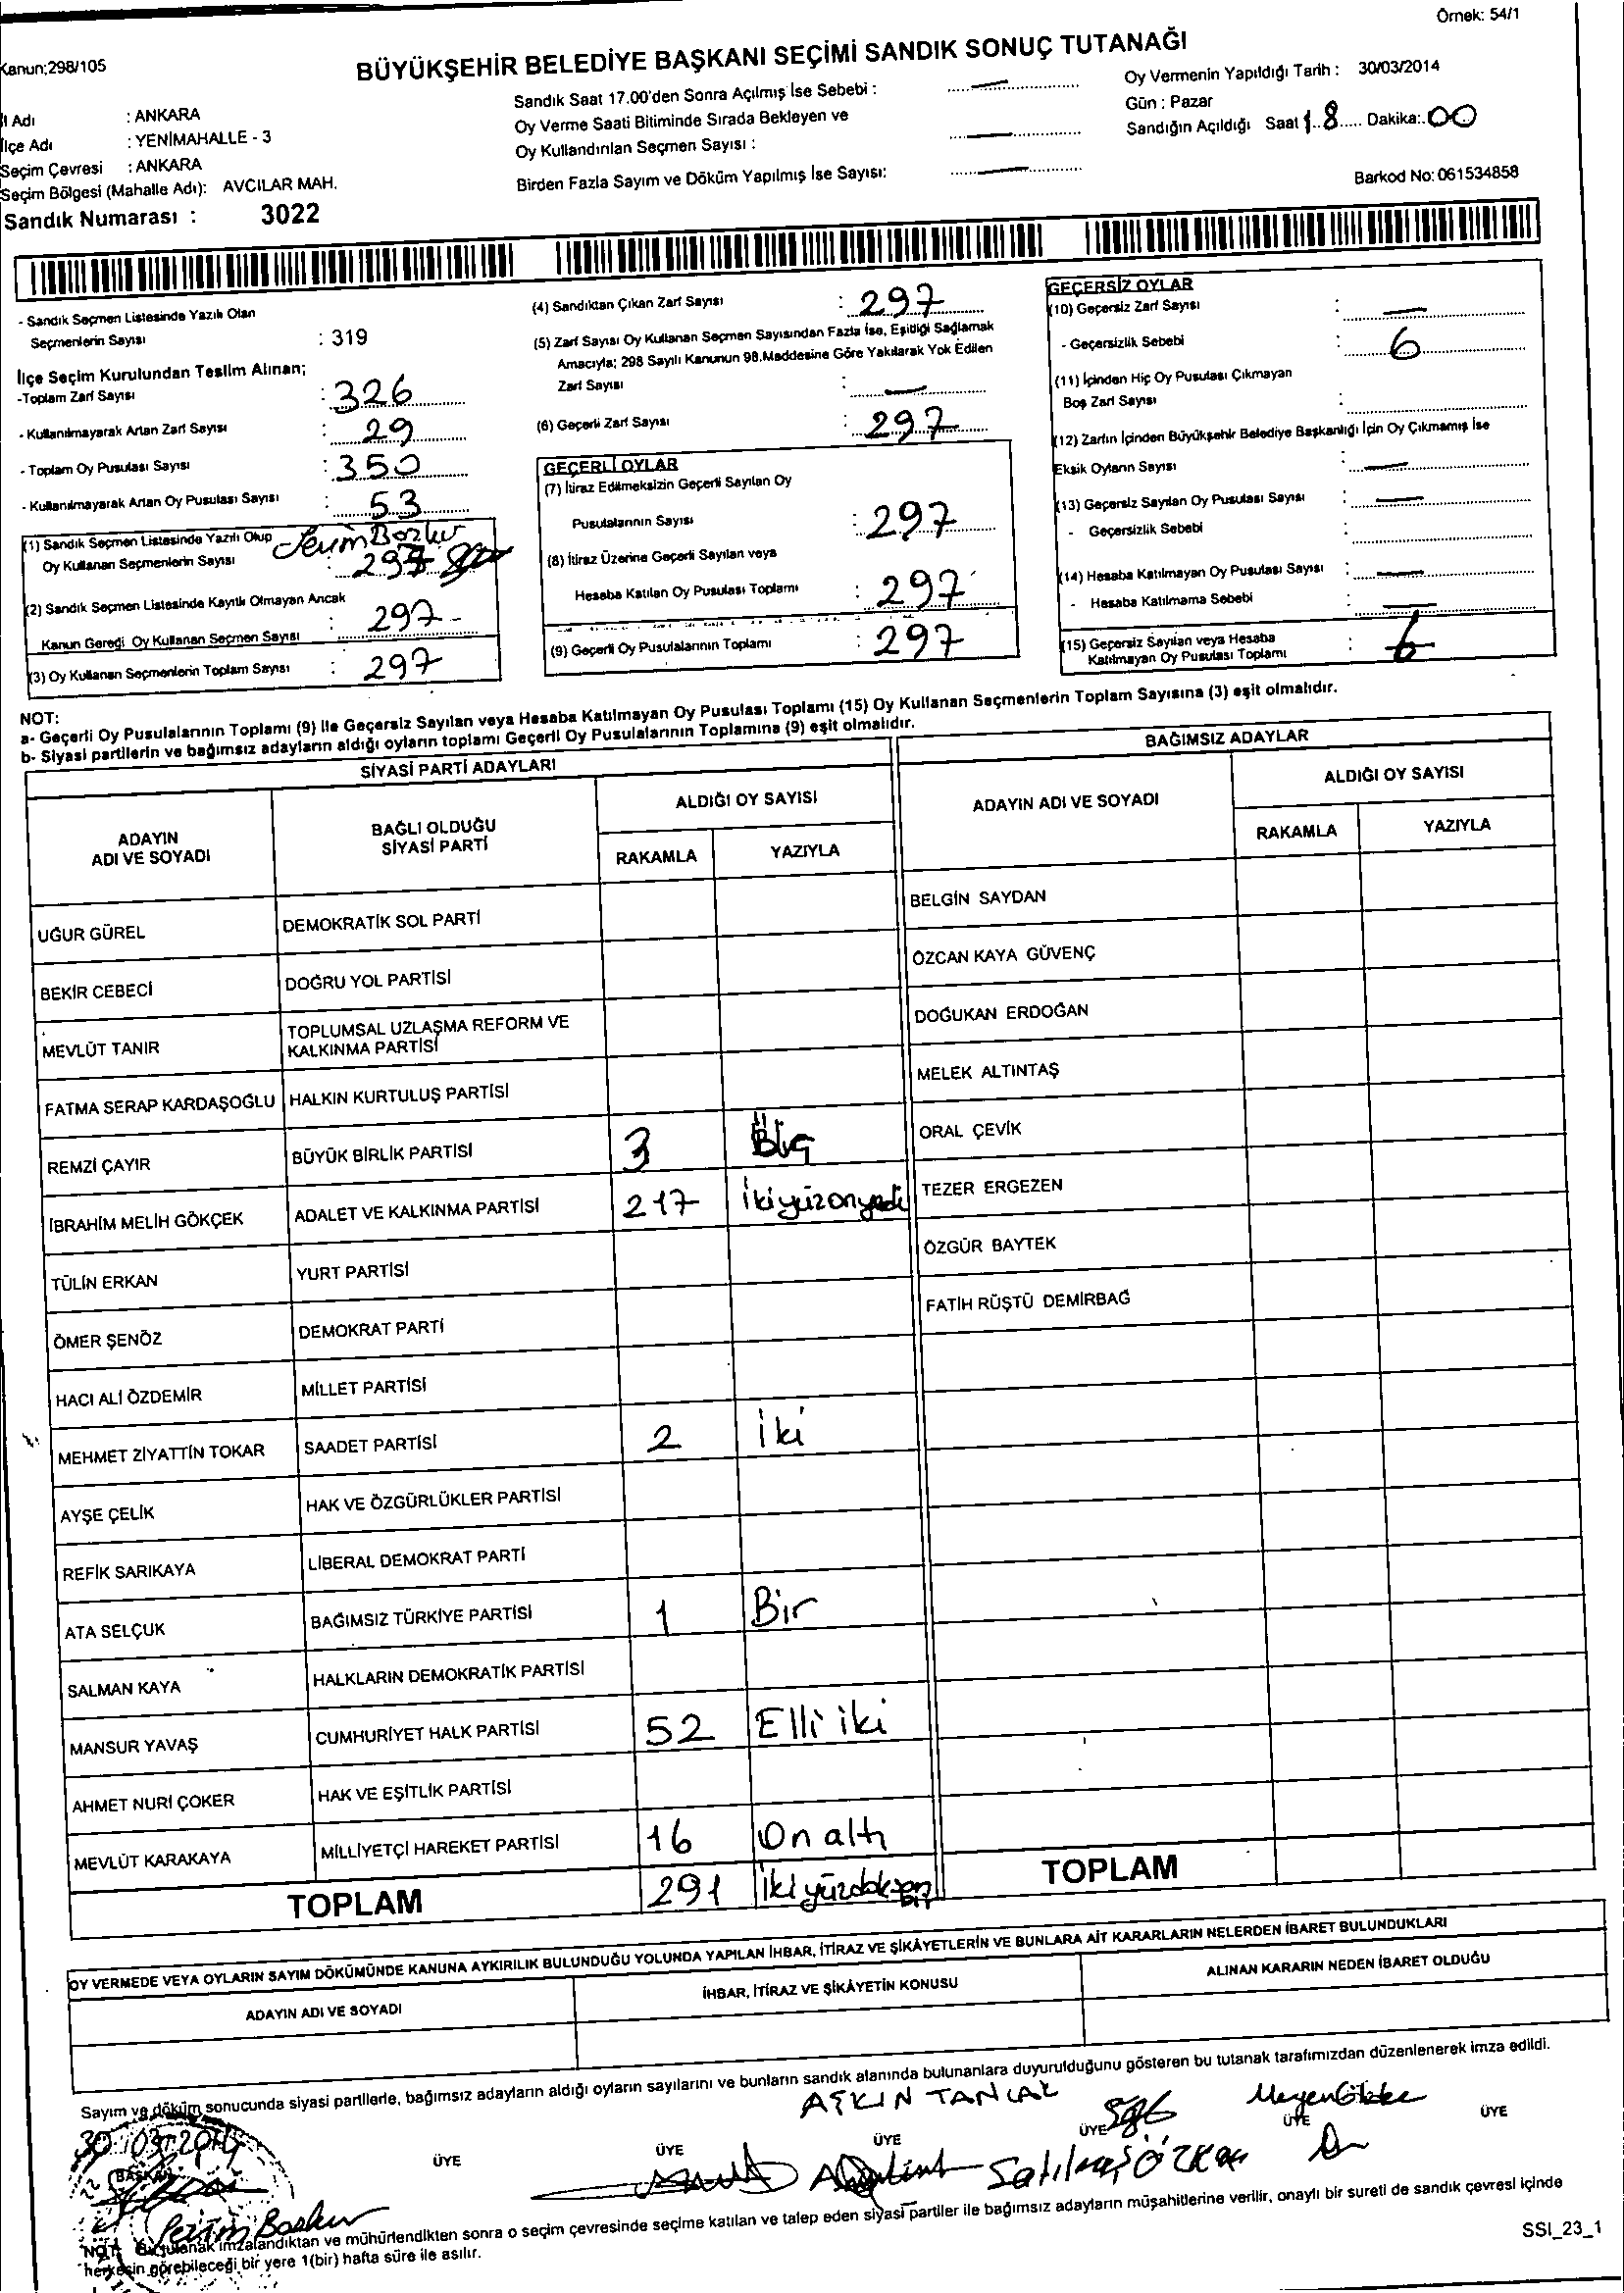 Örnek: 54/1
Kanun;298/105
BÜYÜKŞEHİR BELEDİYE BAŞKANI SEÇİMİ SANDIK SONUÇ TUTANAĞI
İl Adı : ANKARA
İlçe Adı : YENİMAHALLE - 3
Seçim Çevresi : ANKARA
Seçim Bölgesi (Mahalle Adı): AVCILAR MAH.
Sandık Numarası : 3022
Sandık Saat 17.00'den Sonra Açılmış İse Sebebi : —
Oy Verme Saati Bitiminde Sırada Bekleyen ve
Oy Kullandırılan Seçmen Sayısı : —
Birden Fazla Sayım ve Döküm Yapılmış İse Sayısı: —
Oy Vermenin Yapıldığı Tarih : 30/03/2014
Gün : Pazar
Sandığın Açıldığı Saat 18 Dakika: 00
Barkod No: 061534858
- Sandık Seçmen Listesinde Yazılı Olan
Seçmenlerin Sayısı : 319
İlçe Seçim Kurulundan Teslim Alınan;
-Toplam Zarf Sayısı : 326
- Kullanılmayarak Artan Zarf Sayısı : 29
- Toplam Oy Pusulası Sayısı : 350
- Kullanılmayarak Artan Oy Pusulası Sayısı : 53
(1) Sandık Seçmen Listesinde Yazılı Olup
Oy Kullanan Seçmenlerin Sayısı :
(2) Sandık Seçmen Listesinde Kayıtlı Olmayan Ancak
Kanun Gereği Oy Kullanan Seçmen Sayısı : 297
(3) Oy Kullanan Seçmenlerin Toplam Sayısı : 297
(4) Sandıktan Çıkan Zarf Sayısı : 297
(5) Zarf Sayısı Oy Kullanan Seçmen Sayısından Fazla İse, Eşitliği Sağlamak
Amacıyla; 298 Sayılı Kanunun 98.Maddesine Göre Yakılarak Yok Edilen
Zarf Sayısı : —
(6) Geçerli Zarf Sayısı : 297
GEÇERLİ OYLAR
(7) İtiraz Edilmeksizin Geçerli Sayılan Oy
Pusulalarının Sayısı : 297
(8) İtiraz Üzerine Geçerli Sayılan veya
Hesaba Katılan Oy Pusulası Toplamı : 297
(9) Geçerli Oy Pusulalarının Toplamı : 297
GEÇERSİZ OYLAR
(10) Geçersiz Zarf Sayısı : —
- Geçersizlik Sebebi : 6
(11) İçinden Hiç Oy Pusulası Çıkmayan
Boş Zarf Sayısı :
(12) Zarfın İçinden Büyükşehir Belediye Başkanlığı İçin Oy Çıkmamış İse
Eksik Oyların Sayısı : —
(13) Geçersiz Sayılan Oy Pusulası Sayısı : —
- Geçersizlik Sebebi :
(14) Hesaba Katılmayan Oy Pusulası Sayısı : —
- Hesaba Katılmama Sebebi : —
(15) Geçersiz Sayılan veya Hesaba
Katılmayan Oy Pusulası Toplamı : 6
NOT:
a- Geçerli Oy Pusulalarının Toplamı (9) İle Geçersiz Sayılan veya Hesaba Katılmayan Oy Pusulası Toplamı (15) Oy Kullanan Seçmenlerin Toplam Sayısına (3) eşit olmalıdır.
b- Siyasi partilerin ve bağımsız adayların aldığı oyların toplamı Geçerli Oy Pusulalarının Toplamına (9) eşit olmalıdır.
SİYASİ PARTİ ADAYLARI
ADAYIN
ADI VE SOYADI
BAĞLI OLDUĞU
SİYASİ PARTİ
ALDIĞI OY SAYISI
RAKAMLA YAZIYLA
UĞUR GÜREL DEMOKRATİK SOL PARTİ
BEKİR CEBECİ DOĞRU YOL PARTİSİ
MEVLÜT TANIR TOPLUMSAL UZLAŞMA REFORM VE
KALKINMA PARTİSİ
FATMA SERAP KARDAŞOĞLU HALKIN KURTULUŞ PARTİSİ
REMZİ ÇAYIR BÜYÜK BİRLİK PARTİSİ 3
İBRAHİM MELİH GÖKÇEK ADALET VE KALKINMA PARTİSİ 217 ikiyüzonyedi
TÜLİN ERKAN YURT PARTİSİ
ÖMER ŞENÖZ DEMOKRAT PARTİ
HACI ALİ ÖZDEMİR MİLLET PARTİSİ
MEHMET ZİYATTİN TOKAR SAADET PARTİSİ 2 İki
AYŞE ÇELİK HAK VE ÖZGÜRLÜKLER PARTİSİ
REFİK SARIKAYA LİBERAL DEMOKRAT PARTİ
ATA SELÇUK BAĞIMSIZ TÜRKİYE PARTİSİ 1 Bir
SALMAN KAYA HALKLARIN DEMOKRATİK PARTİSİ
MANSUR YAVAŞ CUMHURİYET HALK PARTİSİ 52 Elli iki
AHMET NURİ ÇOKER HAK VE EŞİTLİK PARTİSİ
MEVLÜT KARAKAYA MİLLİYETÇİ HAREKET PARTİSİ 16 On altı
TOPLAM 291 İkiyüzdoksan bir
BAĞIMSIZ ADAYLAR
ADAYIN ADI VE SOYADI
ALDIĞI OY SAYISI
RAKAMLA YAZIYLA
BELGİN SAYDAN
ÖZCAN KAYA GÜVENÇ
DOĞUKAN ERDOĞAN
MELEK ALTINTAŞ
ORAL ÇEVİK
TEZER ERGEZEN
ÖZGÜR BAYTEK
FATİH RÜŞTÜ DEMİRBAĞ
TOPLAM
OY VERMEDE VEYA OYLARIN SAYIM DÖKÜMÜNDE KANUNA AYKIRILIK BULUNDUĞU YOLUNDA YAPILAN İHBAR, İTİRAZ VE ŞİKÂYETLERİN VE BUNLARA AİT KARARLARIN NELERDEN İBARET BULUNDUKLARI
ADAYIN ADI VE SOYADI İHBAR, İTİRAZ VE ŞİKÂYETİN KONUSU ALINAN KARARIN NEDEN İBARET OLDUĞU
Sayım ve döküm sonucunda siyasi partilerle, bağımsız adayların aldığı oyların sayılarını ve bunların sandık alanında bulunanlara duyurulduğunu gösteren bu tutanak tarafımızdan düzenlenerek imza edildi.
30.03.2014
BAŞKAN ÜYE ÜYE ÜYE ÜYE ÜYE ÜYE
AŞKIN
NOT: Bu tutanak imzalandıktan ve mühürlendikten sonra o seçim çevresinde seçime katılan ve talep eden siyasi partiler ile bağımsız adayların müşahitlerine verilir, onaylı bir sureti de sandık çevresi içinde
herkesin görebileceği bir yere 1(bir) hafta süre ile asılır.
SSI_23_1